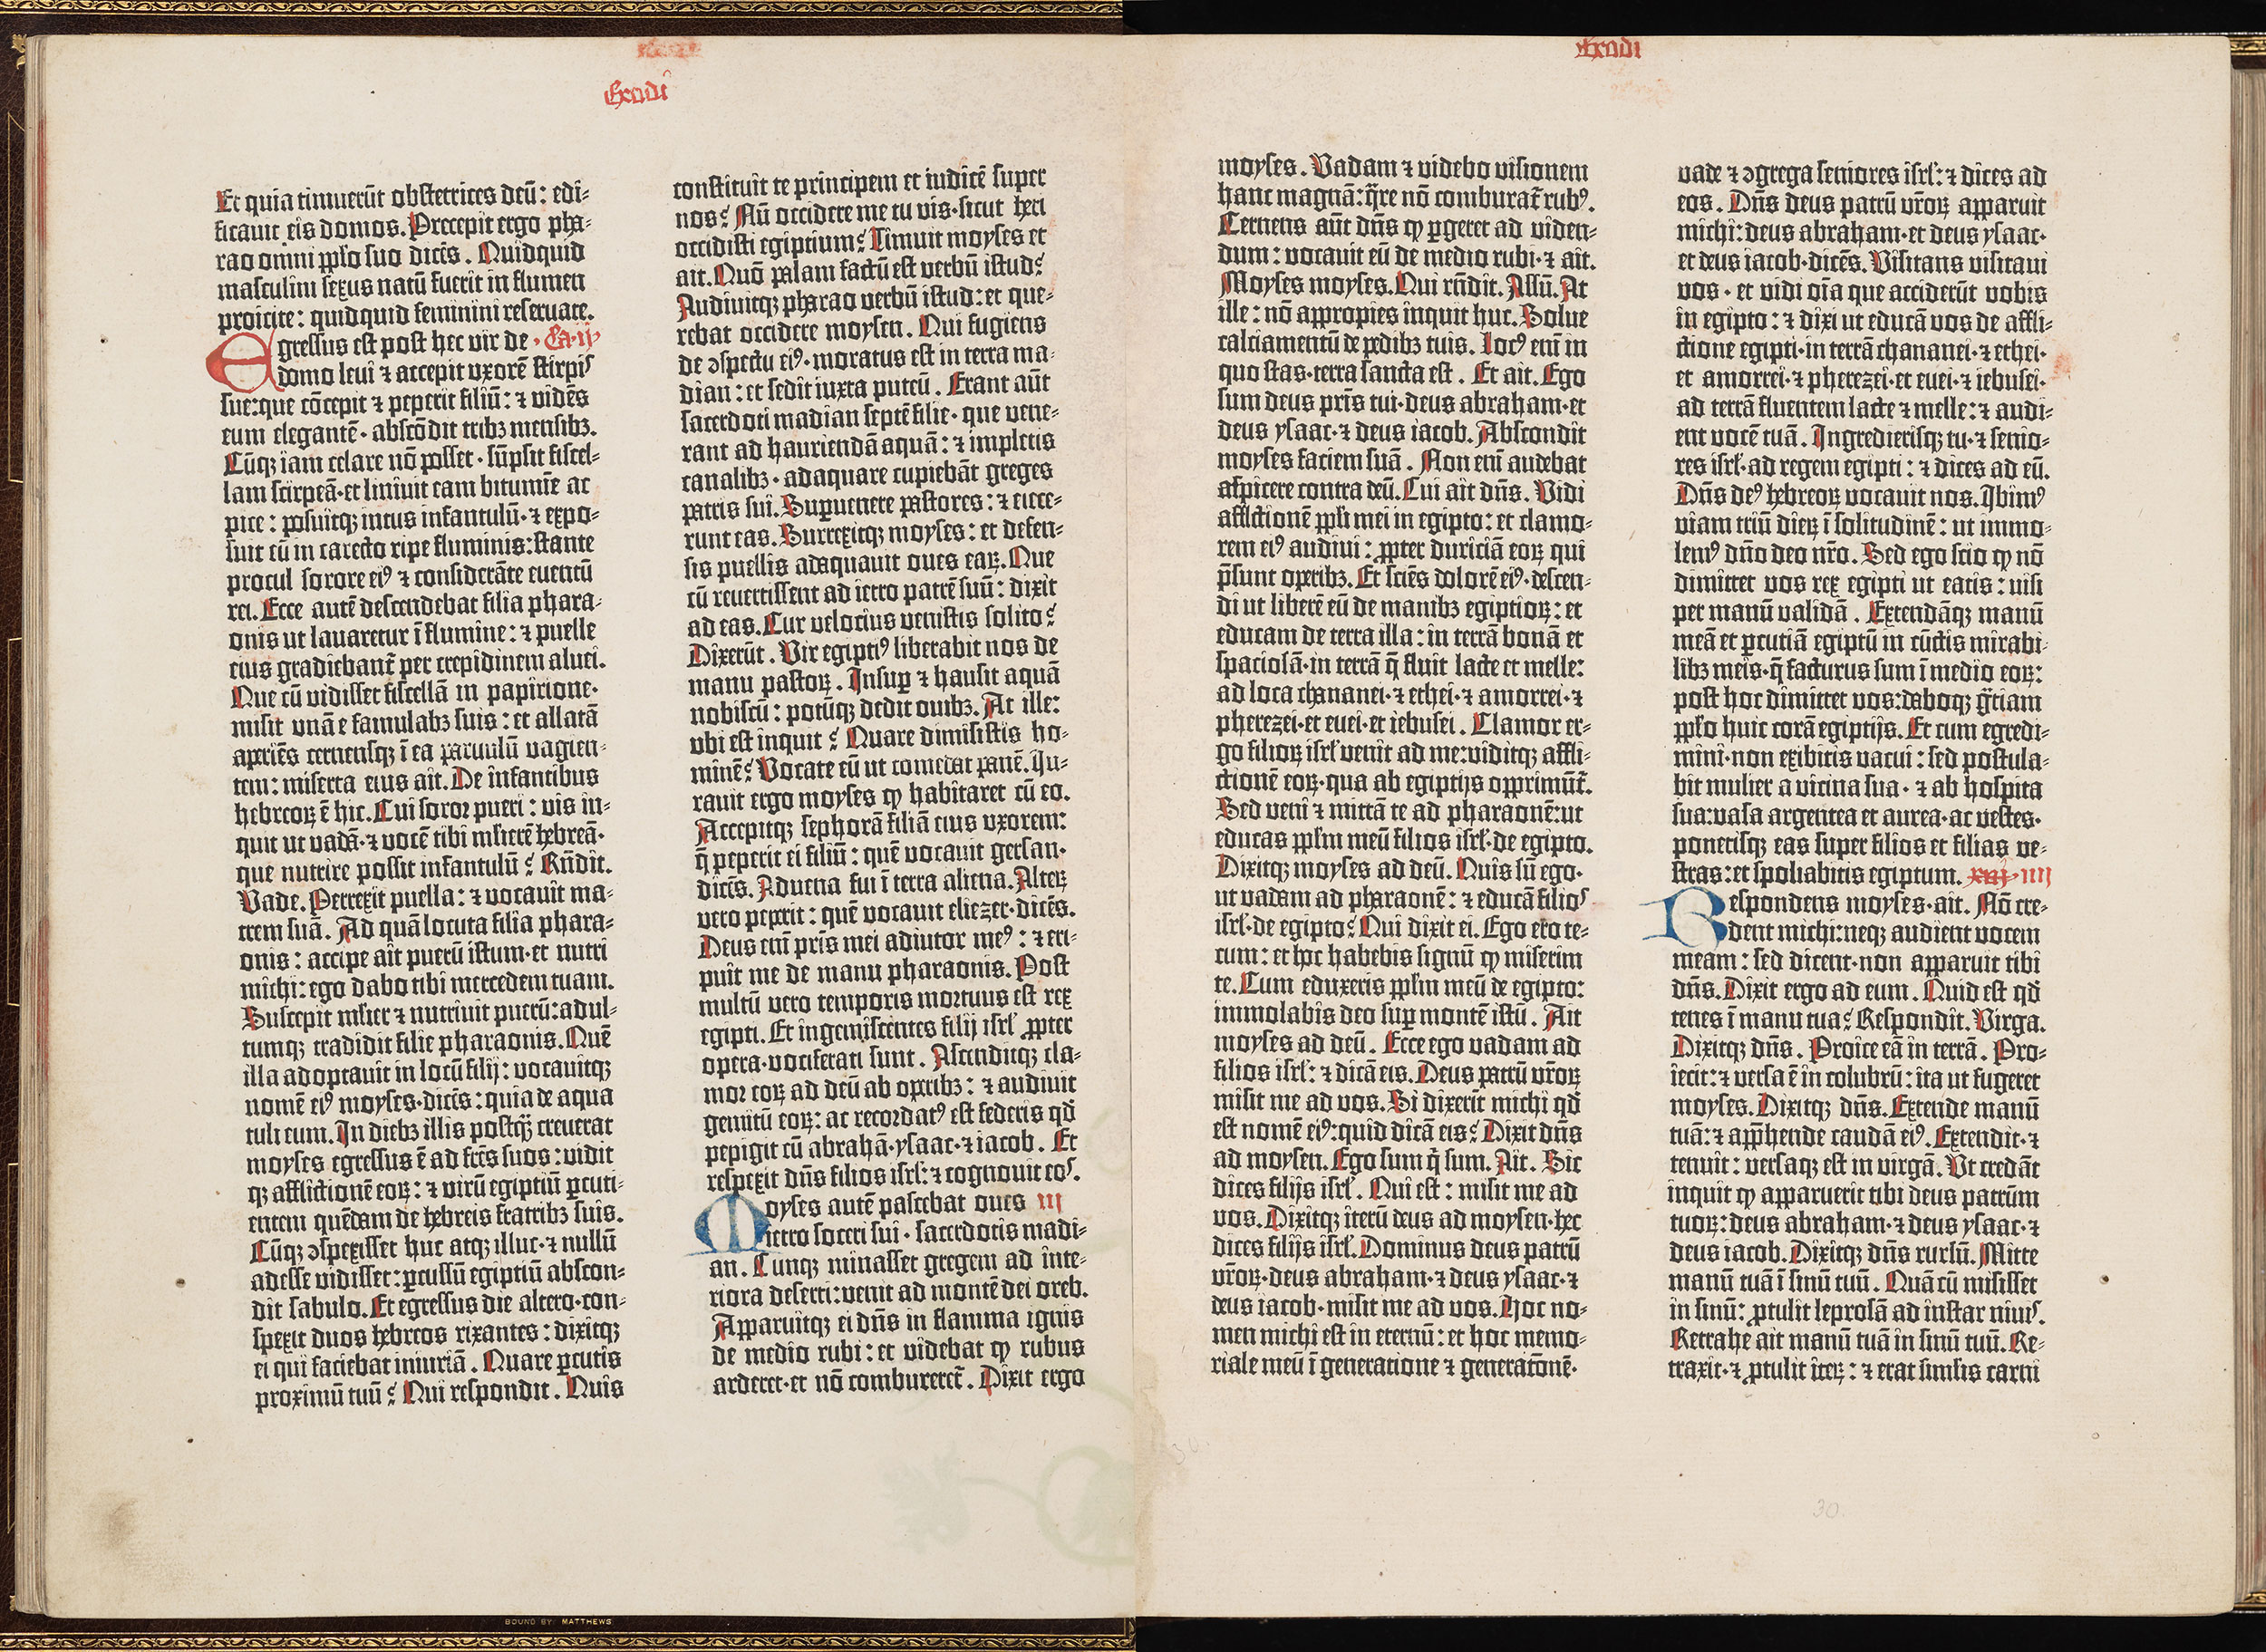 Exodi
Et quia timuerūt obſtetrices deū: edi-
ficauit eis domos. Precepit ergo pha-
rao omni pplo ſuo dicēs. Quidquid
maſculini ſexus natū fuerit in flumen
proicite: quidquid feminini reſeruate.
Egreſſus eſt poſt hec vir de · Ca·ij
domo leui ⁊ accepit vxorē ſtirpis
ſue: que cōcepit ⁊ peperit filiū: ⁊ vidēs
eum elegantē · abſcōdit tribꝫ menſibꝫ.
Cūqꝫ iam celare nō poſſet · ſūpſit fiſcel-
lam ſcirpeā · et liniuit eam bitumīe ac
pice : poſuitqꝫ intus infantulū · ⁊ expo-
ſuit eū in carecto ripe fluminis: ſtante
procul ſorore eiꝰ ⁊ conſiderāte euentū
rei. Ecce autē deſcendebat filia phara-
onis ut lauaretur ī flumine : ⁊ puelle
eius gradiebant̄ per crepidinem aluei.
Que cū vidiſſet fiſcellā in papirione ·
miſit vnā e famulabꝫ ſuis : et allatā
apriēs cernenſqꝫ ī ea paruulū vagien-
tem : miſerta eius ait. De infantibus
hebreoꝝ ē hic. Cui ſoror pueri : vis in-
quit ut vadā · ⁊ vocē tibi mlierē hebreā ·
que nutrire poſſit infantulū ? Rn̄dit.
Vade. Perrexit puella : ⁊ vocauit ma-
trem ſuā. Ad quā locuta filia phara-
onis : accipe ait puerū iſtum · et nutri
michi: ego dabo tibi mercedem tuam.
Suſcepit mlier ⁊ nutriuit puerū: adul-
tumqꝫ tradidit filie pharaonis. Quē
illa adoptauit in locū filij : vocauitqꝫ
nomē eiꝰ moyſes · dicēs : quia de aqua
tuli eum. In diebꝫ illis poſtqͣ̄ creuerat
moyſes egreſſus ē ad frēs ſuos : vidit
qꝫ afflictionē eoꝝ : ⁊ virū egiptiū ꝑcuti-
entem quēdam de hebreis fratribꝫ ſuis.
Cūqꝫ ꝯſpexiſſet huc atqꝫ illuc · ⁊ nullū
adeſſe vidiſſet : ꝑcuſſū egiptiū abſcon-
dit ſabulo. Et egreſſus die altero · con-
ſpexit duos hebreos rixantes : dixitqꝫ
ei qui faciebat iniuriā. Quare ꝑcutis
proximū tuū ? Qui reſpondit. Quis
conſtituit te principem et iudicē ſuper
nos ? Nū occidere me tu vis · ſicut heri
occidiſti egiptium ? Timuit moyſes et
ait. Quō palam factū eſt verbū iſtud ?
Audiuitqꝫ pharao verbū iſtud : et que-
rebat occidere moyſen. Qui fugiens
de ꝯſpectu eiꝰ · moratus eſt in terra ma-
dian : et ſedit iuxta puteū. Erant aūt
ſacerdoti madian ſeptē filie · que vene-
rant ad hauriendā aquā : ⁊ impletis
canalibꝫ · adaquare cupiebāt greges
patris ſui. Suꝑuenere paſtores : ⁊ eiece-
runt eas. Surrexitqꝫ moyſes : et defen-
ſis puellis adaquauit oues eaꝝ. Que
cū reuertiſſent ad ietro patrē ſuū : dixit
ad eas. Cur velocius veniſtis ſolito ?
Dixerūt. Vir egiptiꝰ liberabit nos de
manu paſtoꝝ. Inſuꝑ ⁊ hauſit aquā
nobiſcū : potūqꝫ dedit ouibꝫ. At ille :
vbi eſt inquit ? Quare dimiſiſtis ho-
minē ? Vocate eū ut comedat panē. Iu-
rauit ergo moyſes ꝙ habitaret cū eo.
Accepitqꝫ ſephorā filiā eius vxorem :
q̄ peperit ei filiū : quē vocauit gerſan ·
dicēs. Aduena fui ī terra aliena. Alteꝝ
vero peperit : quē vocauit eliezer · dicēs.
Deus enī pr̄is mei adiutor meꝰ : ⁊ eri-
puit me de manu pharaonis. Poſt
multū vero temporis mortuus eſt rex
egipti. Et ingemiſcentes filij iſrl̕ ꝓpter
opera · vociferati ſunt. Aſcenditqꝫ cla-
mor eoꝝ ad deū ab operibꝫ : ⁊ audiuit
gemitū eoꝝ : ac recordatꝰ eſt federis qd̄
pepigit cū abrahā · yſaac · ⁊ iacob. Et
reſpexit dn̄s filios iſrl̕ : ⁊ cognouit eos.
Moyſes autē paſcebat oues III
ietro ſoceri ſui · ſacerdotis madi-
an. Cunqꝫ minaſſet gregem ad inte-
riora deſerti : venit ad montē dei oreb.
Apparuitqꝫ ei dn̄s in flamma ignis
de medio rubi : et videbat ꝙ rubus
arderet · et nō combureret̄. Dixit ergo
Exodi
moyſes. Vadam ⁊ videbo viſionem
hanc magnā : q̄re nō comburat̄ rubꝰ.
Cernens aūt dn̄s ꝙ ꝑgeret ad viden-
dum : vocauit eū de medio rubi · ⁊ ait.
Moyſes moyſes. Qui rn̄dit. Aſſū. At
ille : nō appropies inquit huc. Solue
calciamentū de pedibꝫ tuis. Locꝰ enī in
quo ſtas · terra ſancta eſt. Et ait. Ego
ſum deus pr̄is tui · deus abraham · et
deus yſaac · ⁊ deus iacob. Abſcondit
moyſes faciem ſuā. Non enī audebat
aſpicere contra deū. Cui ait dn̄s. Vidi
afflictionē ppl̕i mei in egipto : et clamo-
rem eiꝰ audiui : ꝓpter duriciā eoꝝ qui
p̄ſunt operibꝫ. Et ſciēs dolorē eiꝰ · deſcen-
di ut liberē eū de manibꝫ egiptioꝝ : et
educam de terra illa : in terrā bonā et
ſpacioſā · in terrā q̄ fluit lacte et melle :
ad loca chananei · ⁊ ethei · ⁊ amorrei · ⁊
pherezei · et euei · et iebuſei. Clamor er-
go filioꝝ iſrl̕ venit ad me : viditqꝫ affli-
ctionē eoꝝ · qua ab egiptijs opprimūt̄.
Sed veni ⁊ mittā te ad pharaonē : ut
educas ppl̕m meū filios iſrl̕ · de egipto.
Dixitqꝫ moyſes ad deū. Quis ſū ego ·
ut vadam ad pharaonē : ⁊ educā filios
iſrl̕ · de egipto ? Qui dixit ei. Ego ero te-
cum : et hoc habebis ſignū ꝙ miſerim
te. Cum eduxeris ppl̕m meū de egipto :
immolabis deo ſuꝑ montē iſtū. Ait
moyſes ad deū. Ecce ego vadam ad
filios iſrl̕ : ⁊ dicā eis. Deus patrū vr̄oꝝ
miſit me ad vos. Si dixerīt michi qd̄
eſt nomē eiꝰ : quid dicā eis ? Dixit dn̄s
ad moyſen. Ego ſum q̄ ſum. Ait. Sic
dices filijs iſrl̕. Qui eſt : miſit me ad
vos. Dixitqꝫ iterū deus ad moyſen · hec
dices filijs iſrl̕. Dominus deus patrū
vr̄oꝝ · deus abraham · ⁊ deus yſaac · ⁊
deus iacob · miſit me ad vos. Hoc no-
men michi eſt in eternū : et hoc memo-
riale meū ī generatione ⁊ generatōnē.
vade ⁊ ꝯgrega ſeniores iſrl̕ : ⁊ dices ad
eos. Dn̄s deus patrū vr̄oꝝ apparuit
michi : deus abraham · et deus yſaac ·
et deus iacob · dicēs. Viſitans viſitaui
vos · et vidi oīa que acciderūt vobis
in egipto : ⁊ dixi ut educā vos de affli-
ctione egipti · in terrā chananei · ⁊ ethei ·
et amorrei · ⁊ pherezei · et euei · ⁊ iebuſei ·
ad terrā fluentem lacte ⁊ melle : ⁊ audi-
ent vocē tuā. Ingredieriſqꝫ tu · ⁊ ſenio-
res iſrl̕ · ad regem egipti : ⁊ dices ad eū.
Dn̄s deꝰ hebreoꝝ vocauit nos. Ibimꝰ
viam triū dieꝝ ī ſolitudinē : ut immo-
lemꝰ dn̄o deo nr̄o. Sed ego ſcio ꝙ nō
dimittet vos rex egipti ut eatis : niſi
per manū validā. Extendāqꝫ manū
meā et ꝑcutiā egiptū in cūctis mirabi-
libꝫ meis · q̄ facturus ſum ī medio eoꝝ :
poſt hoc dimittet vos : daboqꝫ gr̄tiam
pplo huic corā egiptijs. Et cum egredi-
mini · non exibitis vacui : ſed poſtula-
bit mulier a vicina ſua · ⁊ ab hoſpita
ſua : vaſa argentea et aurea · ac veſtes ·
ponetiſqꝫ eas ſuper filios et filias ve-
ſtras : et ſpoliabitis egiptum. IIII
Reſpondens moyſes · ait. Nō cre-
dent michi : neqꝫ audient vocem
meam : ſed dicent · non apparuit tibi
dn̄s. Dixit ergo ad eum. Quid eſt qd̄
tenes ī manu tua ? Reſpondit. Virga.
Dixitqꝫ dn̄s. Proice eā in terrā. Pro-
iecit : ⁊ verſa ē in colubrū : ita ut fugeret
moyſes. Dixitqꝫ dn̄s. Extende manū
tuā : ⁊ app̄hende caudā eiꝰ. Extendit · ⁊
tenuit : verſaqꝫ eſt in virgā. Vt credāt
inquit ꝙ apparuerit tibi deus patrum
tuoꝝ : deus abraham · ⁊ deus yſaac · ⁊
deus iacob. Dixitqꝫ dn̄s rurſū. Mitte
manū tuā ī ſinū tuū. Quā cū miſiſſet
in ſinū : ꝓtulit leproſā ad inſtar niuis.
Retrahe ait manū tuā in ſinū tuū. Re-
traxit · ⁊ ꝓtulit iteꝝ : ⁊ erat ſimilis carni
30.
BOUND BY MATTHEWS